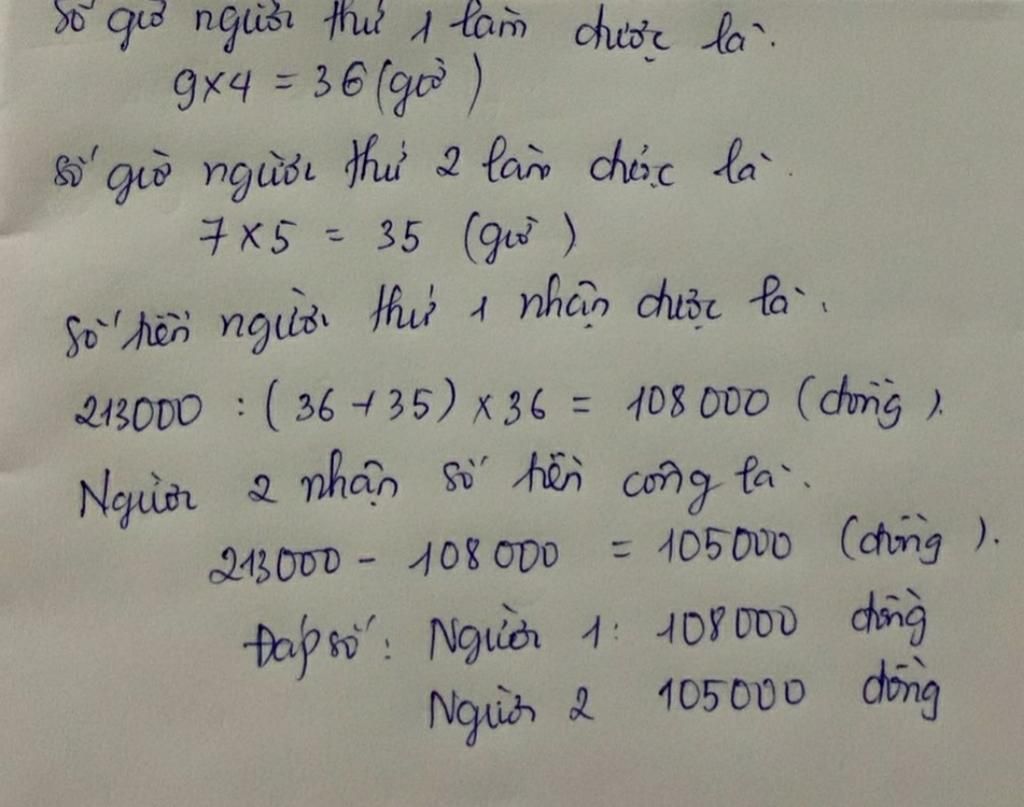 Số giờ người thứ 1 làm được là.
9 x 4 = 36 (giờ)
Số giờ người thứ 2 làm được là.
7 x 5 = 35 (giờ)
Số tiền người thứ 1 nhận được là.
213000 : (36 + 35) x 36 = 108 000 (đồng).
Người 2 nhận số tiền công là.
213000 - 108 000 = 105000 (đồng).
Đáp số: Người 1: 108 000 đồng
Người 2 105000 đồng